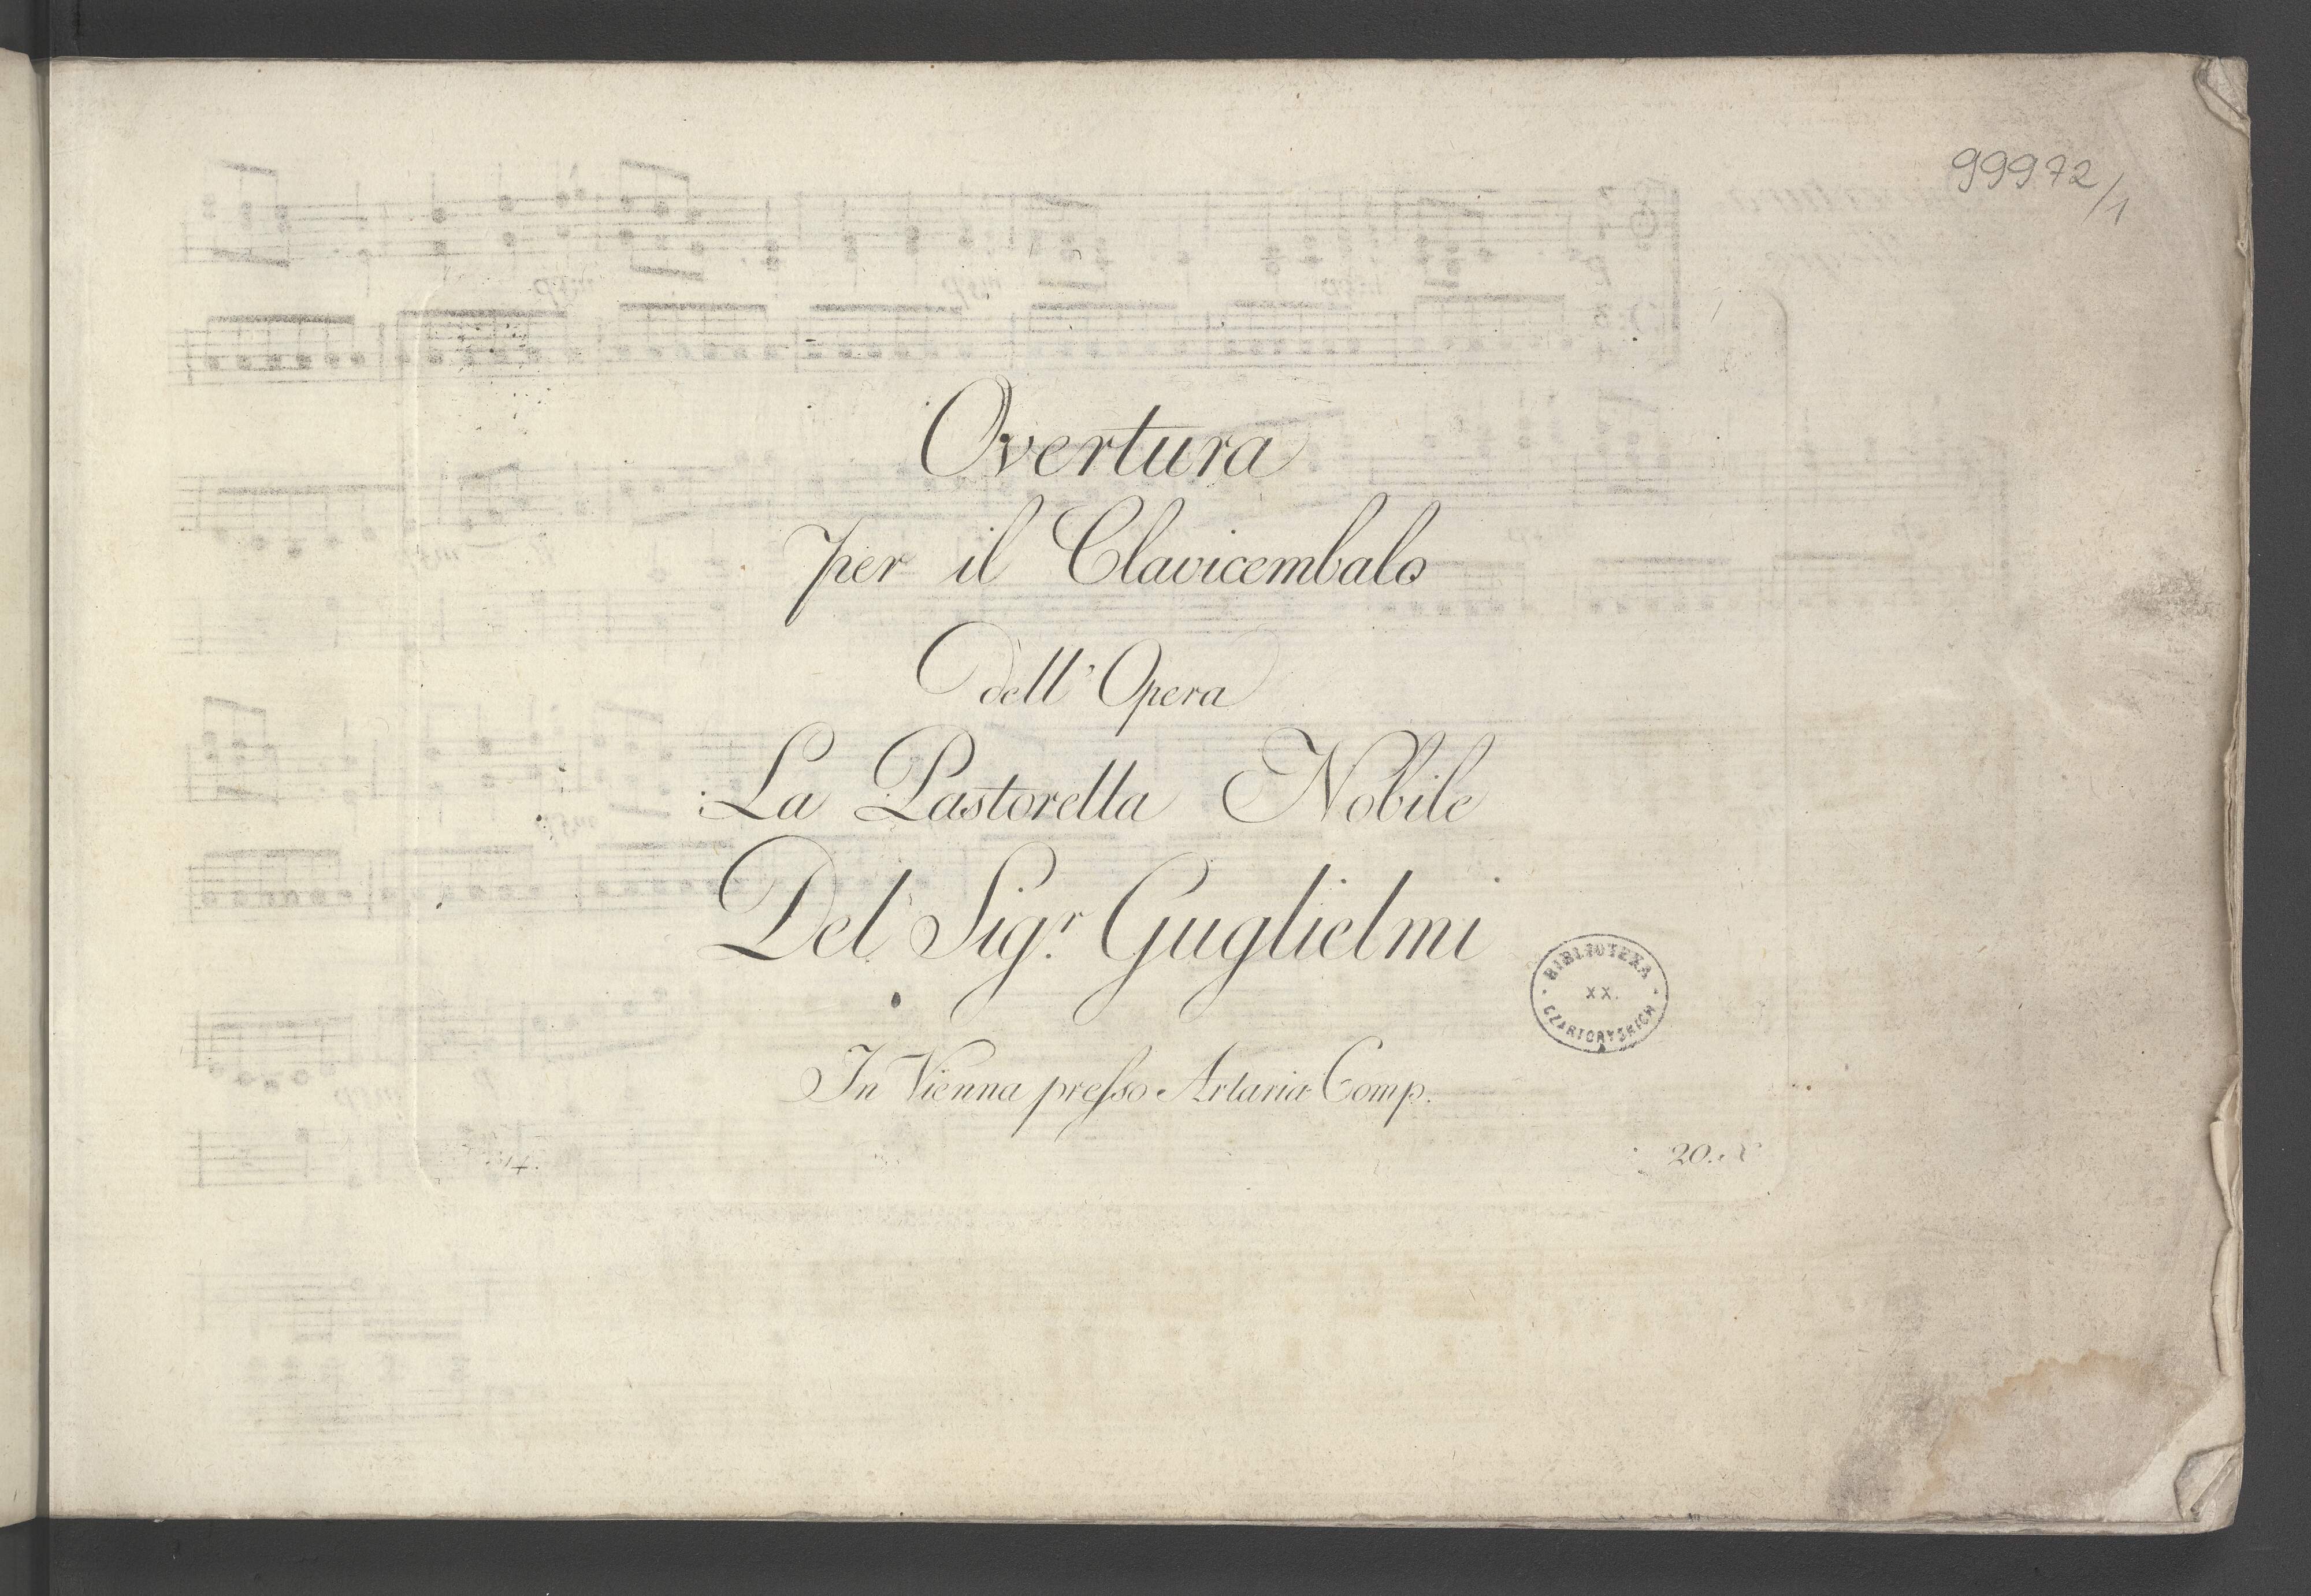 99972/1
Overtura
per il Clavicembalo
dell' Opera
La Pastorella Nobile
Del Sigr. Guglielmi
BIBLIOTEKA
XX.
CZARTORYSKICH
In Vienna presso Artaria Comp.
20. X